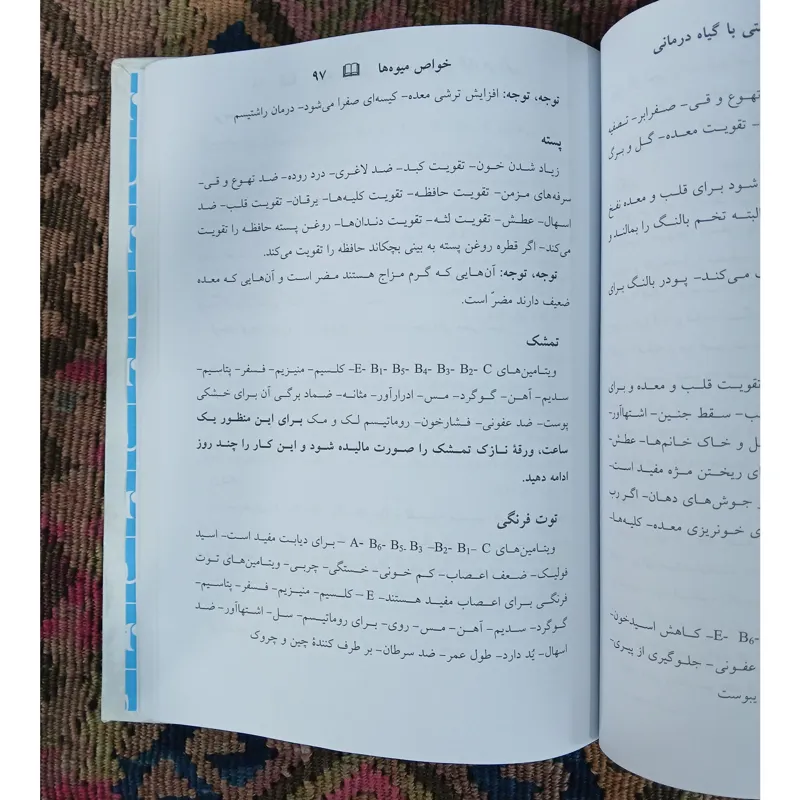 خواص میوه‌ها ۹۷
توجه، توجه: افزایش ترشی معده- کیسه‌ای صفرا می‌شود- درمان راشتیسم
پسته
زیاد شدن خون- تقویت کبد- ضد لاغری- درد روده- ضد تهوع و قی-
سرفه‌های مزمن- تقویت حافظه- تقویت کلیه‌ها- یرقان- تقویت قلب- ضد
اسهال- عطش- تقویت لثه- تقویت دندان‌ها- روغن پسته حافظه را تقویت
می‌کند- اگر قطره روغن پسته به بینی بچکاند حافظه را تقویت می‌کند.
توجه، توجه: آن‌هایی که گرم مزاج هستند مضر است و آن‌هایی که معده
ضعیف دارند مضرّ است.
تمشک
ویتامین‌های E- B1- B5- B4- B3- B2- C- کلسیم- منیزیم- فسفر- پتاسیم-
سدیم- آهن- گوگرد- مس- ادرارآور- مثانه- ضماد برگی آن برای خشکی
پوست- ضد عفونی- فشارخون- روماتیسم لک و مک برای این منظور یک
ساعت، ورقهٔ نازک تمشک را صورت مالیده شود و این کار را چند روز
ادامه دهید.
توت فرنگی
ویتامین‌های A- B6- B5. B3 –B2- B1– C – برای دیابت مفید است- اسید
فولیک- ضعف اعصاب- کم خونی- خستگی- چربی- ویتامین‌های توت
فرنگی برای اعصاب مفید هستند- E – کلسیم- منیزیم- فسفر- پتاسیم-
گوگرد- سدیم- آهن- مس- روی- برای روماتیسم- سل- اشتهاآور- ضد
اسهال- یُد دارد- طول عمر- ضد سرطان- بر طرف کنندهٔ چین و چروک
با گیاه درمانی
تهوع و قی- صفرابر- تصفیه
- تقویت معده- گل و برگ
شود برای قلب و معده نفخ
البته تخم بالنگ را بمالند و
می‌کند- پودر بالنگ برای
تقویت قلب و معده و برای
سقط جنین- اشتهاآور-
و خاک خانم‌ها- عطش-
ریختن مژه مفید است-
جوش‌های دهان- اگر رب
خونریزی معده- کلیه‌ها-
E- B6- کاهش اسیدخون-
عفونی- جلوگیری از پیری-
یبوست